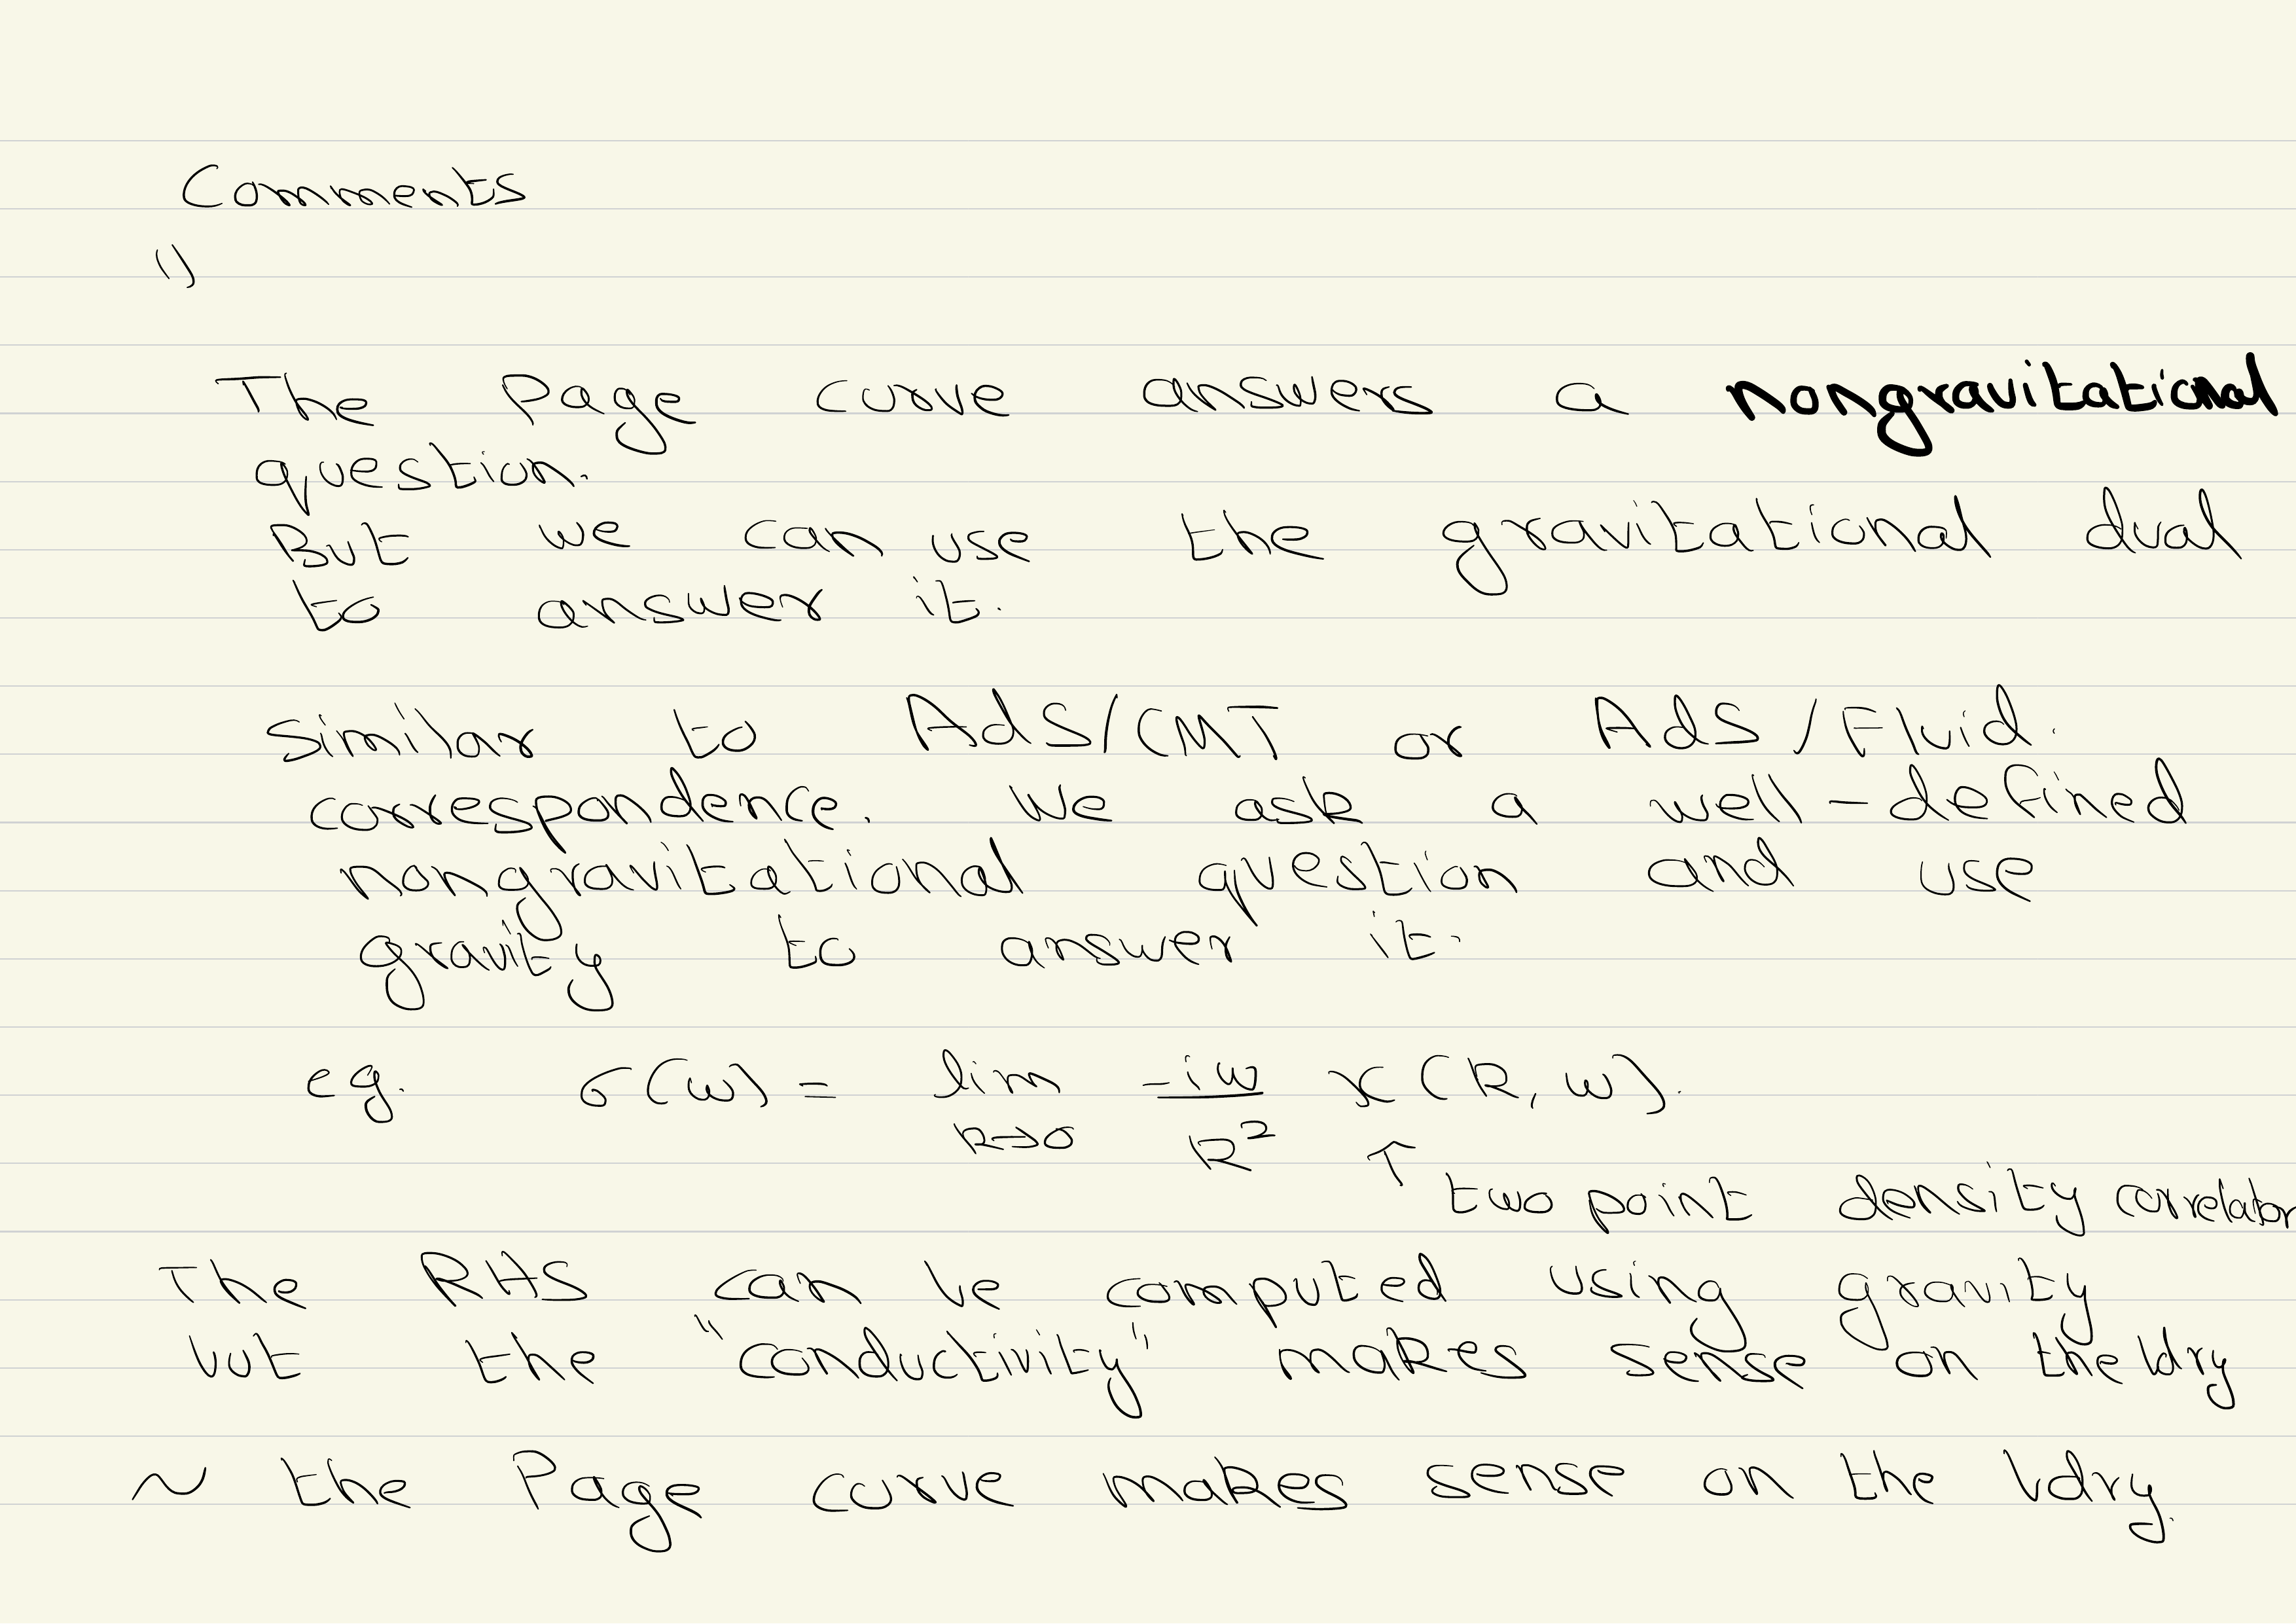 Comments
1)
The Page curve answers a nongravitational
question.
But we can use the gravitational dual
to answer it.
Similar to AdS/CMT or AdS/Fluid.
correspondence. We ask a well-defined
nongravitational question and use
gravity to answer it.
eg. σ(ω) = lim_{k→0} \frac{-iω}{k^2} χ(k, ω).
↑ two point density correlator
The RHS can be computed using gravity
but the "conductivity" makes sense on the bdry
~ the Page curve makes sense on the bdry.